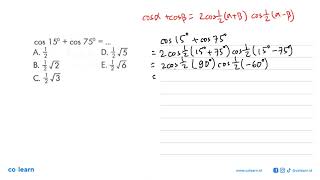 cos α + cos β = 2 cos ½ (α+β) cos ½ (α-β)
cos 15° + cos 75° = ...
A. ½
D. ½√5
B. ½√2
E. ½√6
C. ½√3
cos 15° + cos 75°
= 2 cos ½ (15° + 75°) cos ½ (15° - 75°)
= 2 cos ½ (90°) cos ½ (-60°)
=
co learn
www.colearn.id
@colearn.id